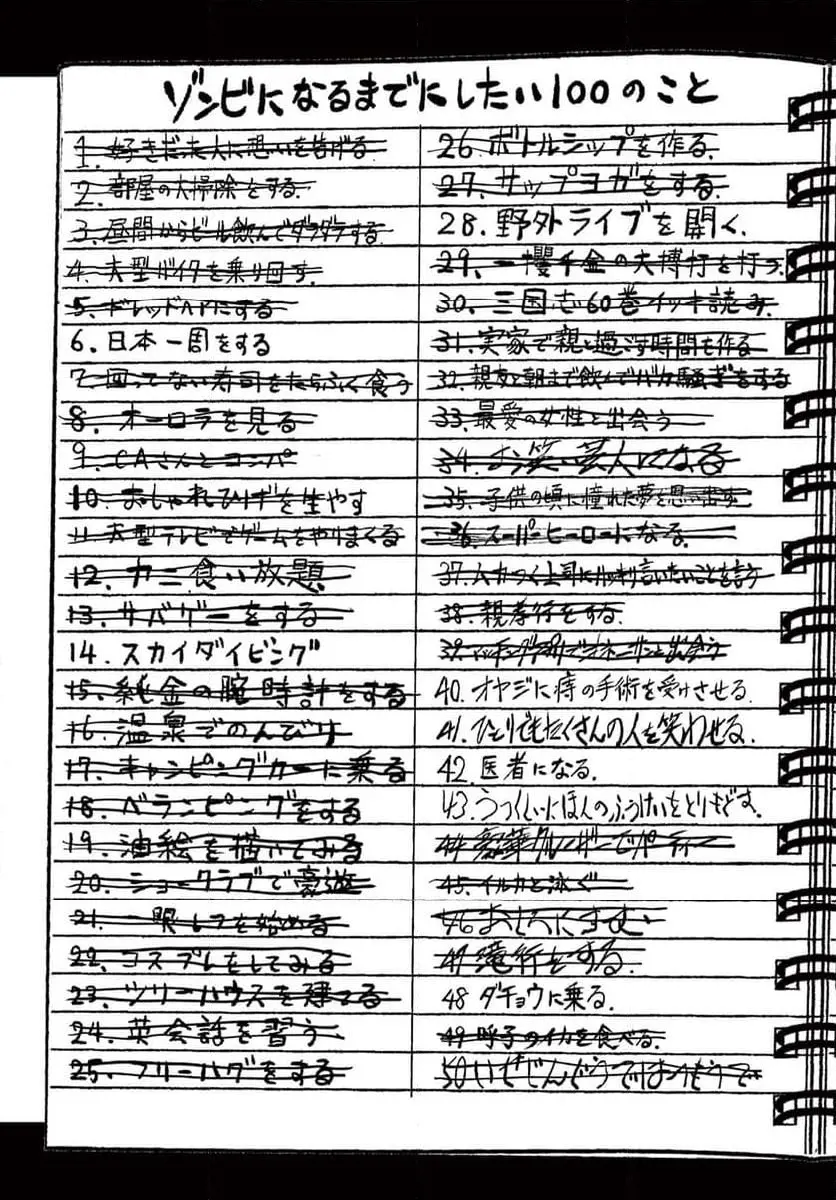 ゾンビになるまでにしたい100のこと
1. 好きだった人に想いを告げる
2. 部屋の大掃除をする
3. 昼間からビール飲んでダラダラする
4. 大型バイクを乗り回す
5. ドレッドヘアにする
6. 日本一周をする
7. 回ってない寿司をたらふく食う
8. オーロラを見る
9. CAさんとコンパ
10. おしゃれひげを生やす
11. 大型テレビでゲームをやりまくる
12. カニ食い放題
13. サバゲーをする
14. スカイダイビング
15. 純金の腕時計をする
16. 温泉でのんびり
17. キャンピングカーに乗る
18. ベランピングをする
19. 油絵を描いてみる
20. ショークラブで豪遊
21. 一眼レフを始める
22. コスプレをしてみる
23. ツリーハウスを建てる
24. 英会話を習う
25. フリーハグをする
26. ボトルシップを作る
27. サップヨガをする
28. 野外ライブを開く
29. 一攫千金の大博打を打つ
30. 三国志60巻イッキ読み
31. 実家で親と過ごす時間も作る
32. 親友と朝まで飲んでバカ騒ぎをする
33. 最愛の女性と出会う
34. お笑い芸人になる
35. 子供の頃に憧れた夢を思い出す
36. スーパーヒーローになる
37. ムカつく上司にハッキリ言いたいことを言う
38. 親孝行をする
39. と出会う
40. オヤジに痔の手術を受けさせる
41. ひとりでもたくさんの人を笑わせる
42. 医者になる
43. うつくしいにほんのふうけいをとりもどす
44. 豪華クルーザーでパーティー
45. イルカと泳ぐ
46. おしろにすむ
47. 滝行をする
48 ダチョウに乗る
49 呼子のイカを食べる
50